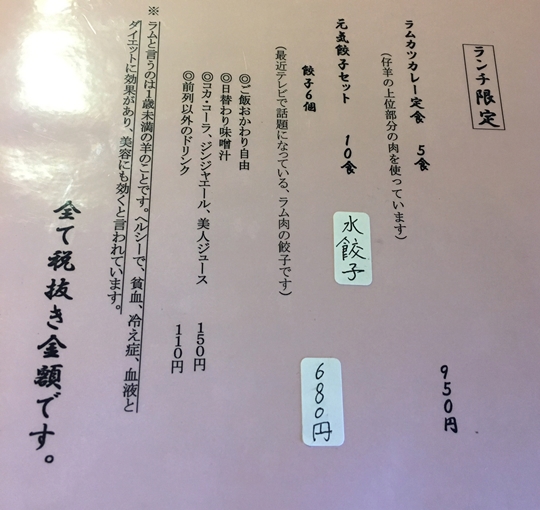 ランチ限定
ラムカツカレー定食 5食 950円
(仔羊の上位部分の肉を使っています)
元気餃子セット 10食 水餃子 680円
餃子6個
(最近テレビで話題になっている、ラム肉の餃子です)
◎ご飯おかわり自由
◎日替わり味噌汁
◎コカ・コーラ、ジンジャエール、美人ジュース 150円
◎前列以外のドリンク 110円
※ ラムと言うのは1歳未満の羊のことです。ヘルシーで、貧血、冷え症、血液と
ダイエットに効果があり、美容にも効くと言われています。
全て税抜き金額です。